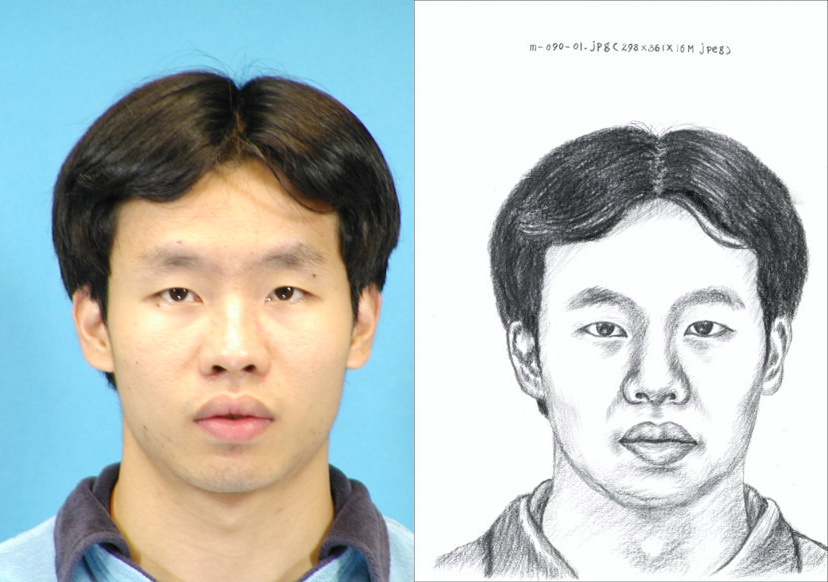 m-090-01.jpg(298x361x16M jpeg)